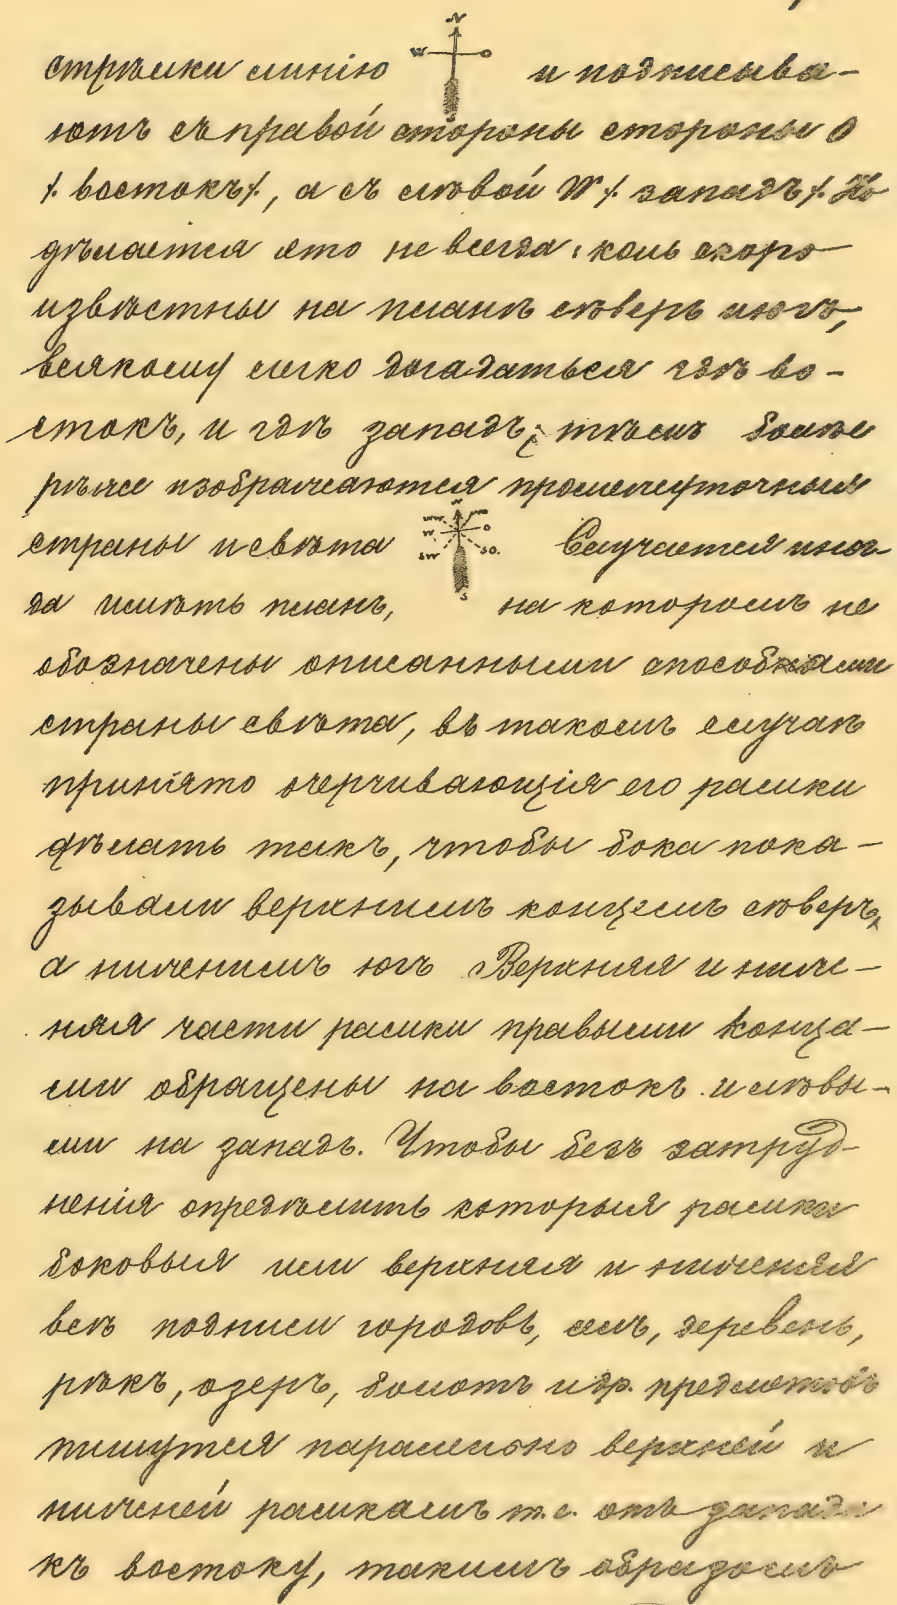 N
W O
стрѣлки линію и подписыва-
S
ютъ съ правой стороны стороны О
/. востокъ /, а съ лѣвой W /. западъ /. Но
дѣлается это не всегда: коль скоро
извѣстны на планѣ сѣверъ и югъ,
всякому легко догадаться гдѣ во-
стокъ, и гдѣ западъ; тѣмъ болѣе
рѣже изображаются промежуточныя
N
W O
страны и свѣта Случается иног-
SW SO.
S
да имѣть планъ, на которомъ не
обозначены описанными способами
страны свѣта, въ такомъ случаѣ
принiято очерчивающія его рамки
дѣлать такъ, чтобы бока пока-
зывали верхнимъ концемъ сѣверъ,
а нижнимъ югъ Верхняя и ниж-
няя части рамки правыми конца-
ми обращены на востокъ и лѣвы-
ми на западъ. Чтобы безъ затруд-
ненія опредѣлить которыя рамки
боковыя или верхняя и нижняя
всѣ подписи городовъ, селъ, деревень,
рѣкъ, озеръ, болотъ и др. предметовъ
пишутся паралельно верхней и
нижней рамкамъ т.е. отъ запада
къ востоку, такимъ образомъ